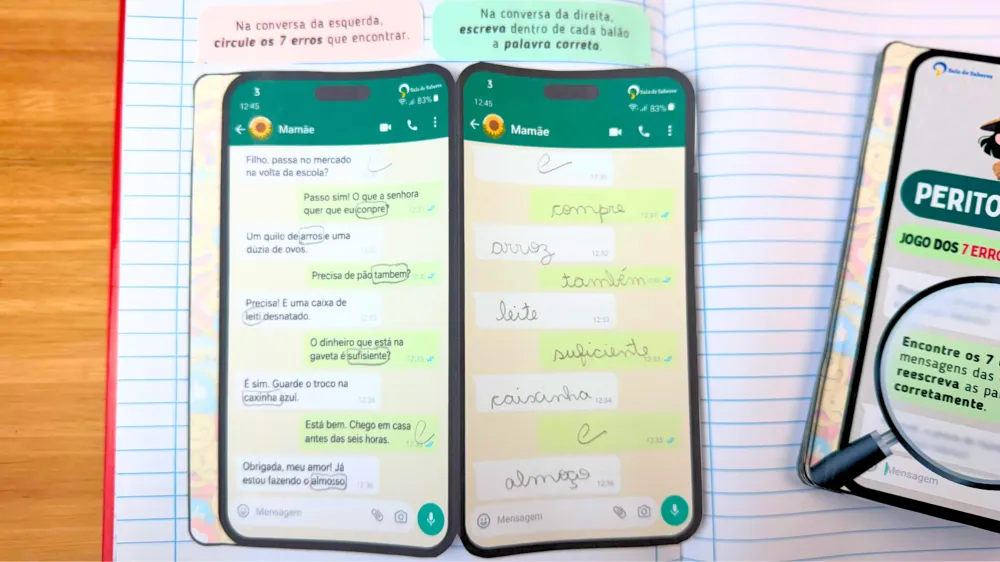 Na conversa da esquerda,
circule os 7 erros que encontrar.
Na conversa da direita,
escreva dentro de cada balão
a palavra correta.
3
Sala de Saberes
12:45
83%
Mamãe
Filho, passa no mercado
na volta da escola?
C
Passo sim! O que a senhora
quer que eu conpre?
Um quilo de arros e uma
dúzia de ovos.
Precisa de pão tambem?
Precisa! E uma caixa de
leiti desnatado.
12:33
O dinheiro que está na
gaveta é sufisiente?
12:33
É sim. Guarde o troco na
caxinha azul.
12:34
Está bem. Chego em casa
antes das seis horas.
C
Obrigada, meu amor! Já
estou fazendo o almosso.
12:36
Mensagem
3
Sala de Saberes
12:45
83%
Mamãe
C
12:30
compre
12:31
arroz
12:32
também
leite
12:33
suficiente
12:33
caixinha
12:34
C
12:35
almoço
12:36
Mensagem
Sala de Saberes
PERITO
JOGO DOS 7 ERRO
Encontre os 7
mensagens das
reescreva as pa
corretamente.
Mensagem